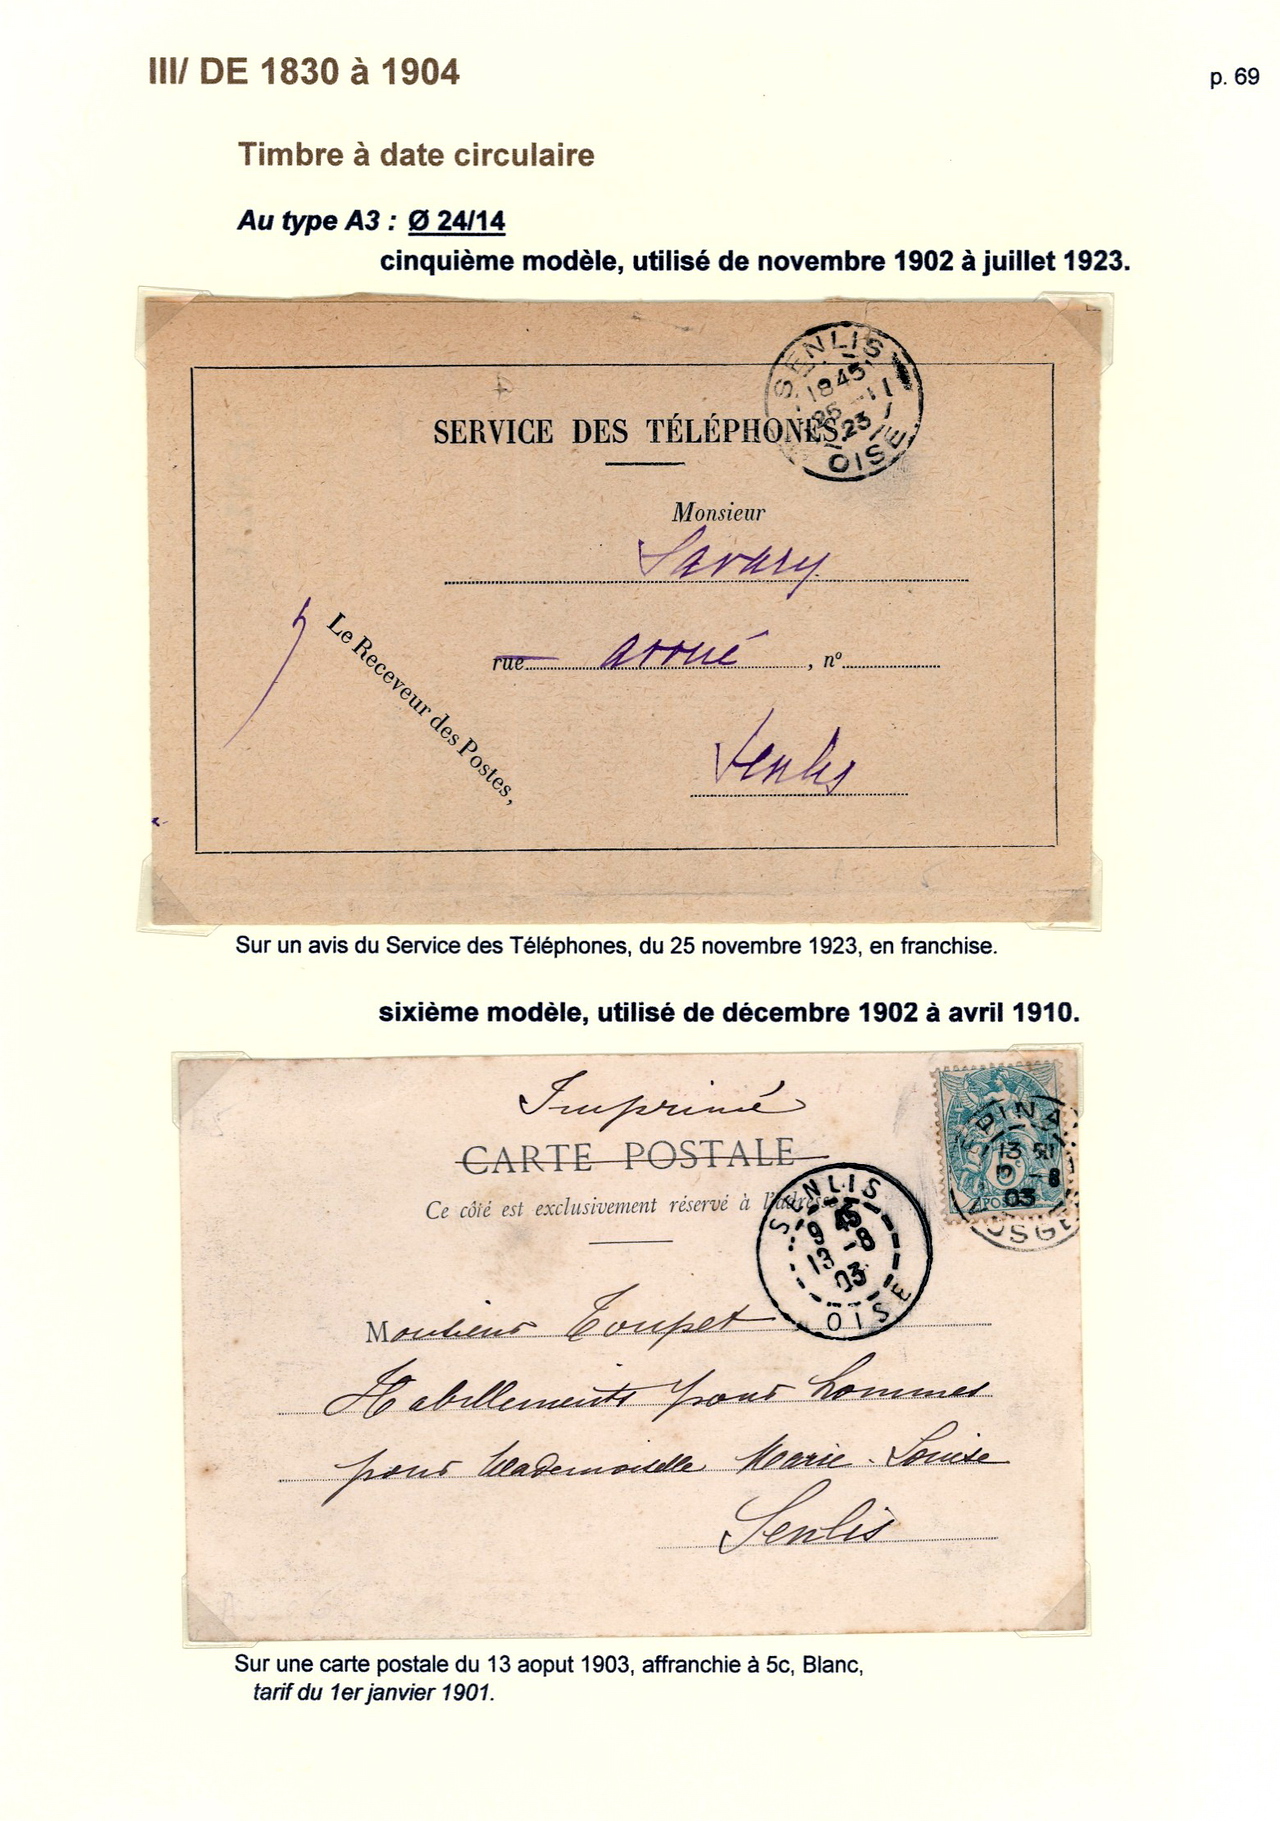 III/ DE 1830 à 1904
p. 69
Timbre à date circulaire
Au type A3 : Ø 24/14
cinquième modèle, utilisé de novembre 1902 à juillet 1923.
SENLIS
1845
25 -11
23
OISE
SERVICE DES TÉLÉPHONES
Monsieur
Savary
rue avoué, nº
Senlis
Le Receveur des Postes,
Sur un avis du Service des Téléphones, du 25 novembre 1923, en franchise.
sixième modèle, utilisé de décembre 1902 à avril 1910.
Imprimé
CARTE POSTALE
Ce côté est exclusivement réservé à l'adresse
PINA
13
-8
03
OSGE
SENLIS
13 8
03
OISE
Monsieur Toupet
Habillements pour hommes
pour Mademoiselle Marie-Louise
Senlis
Sur une carte postale du 13 aoput 1903, affranchie à 5c, Blanc,
tarif du 1er janvier 1901.